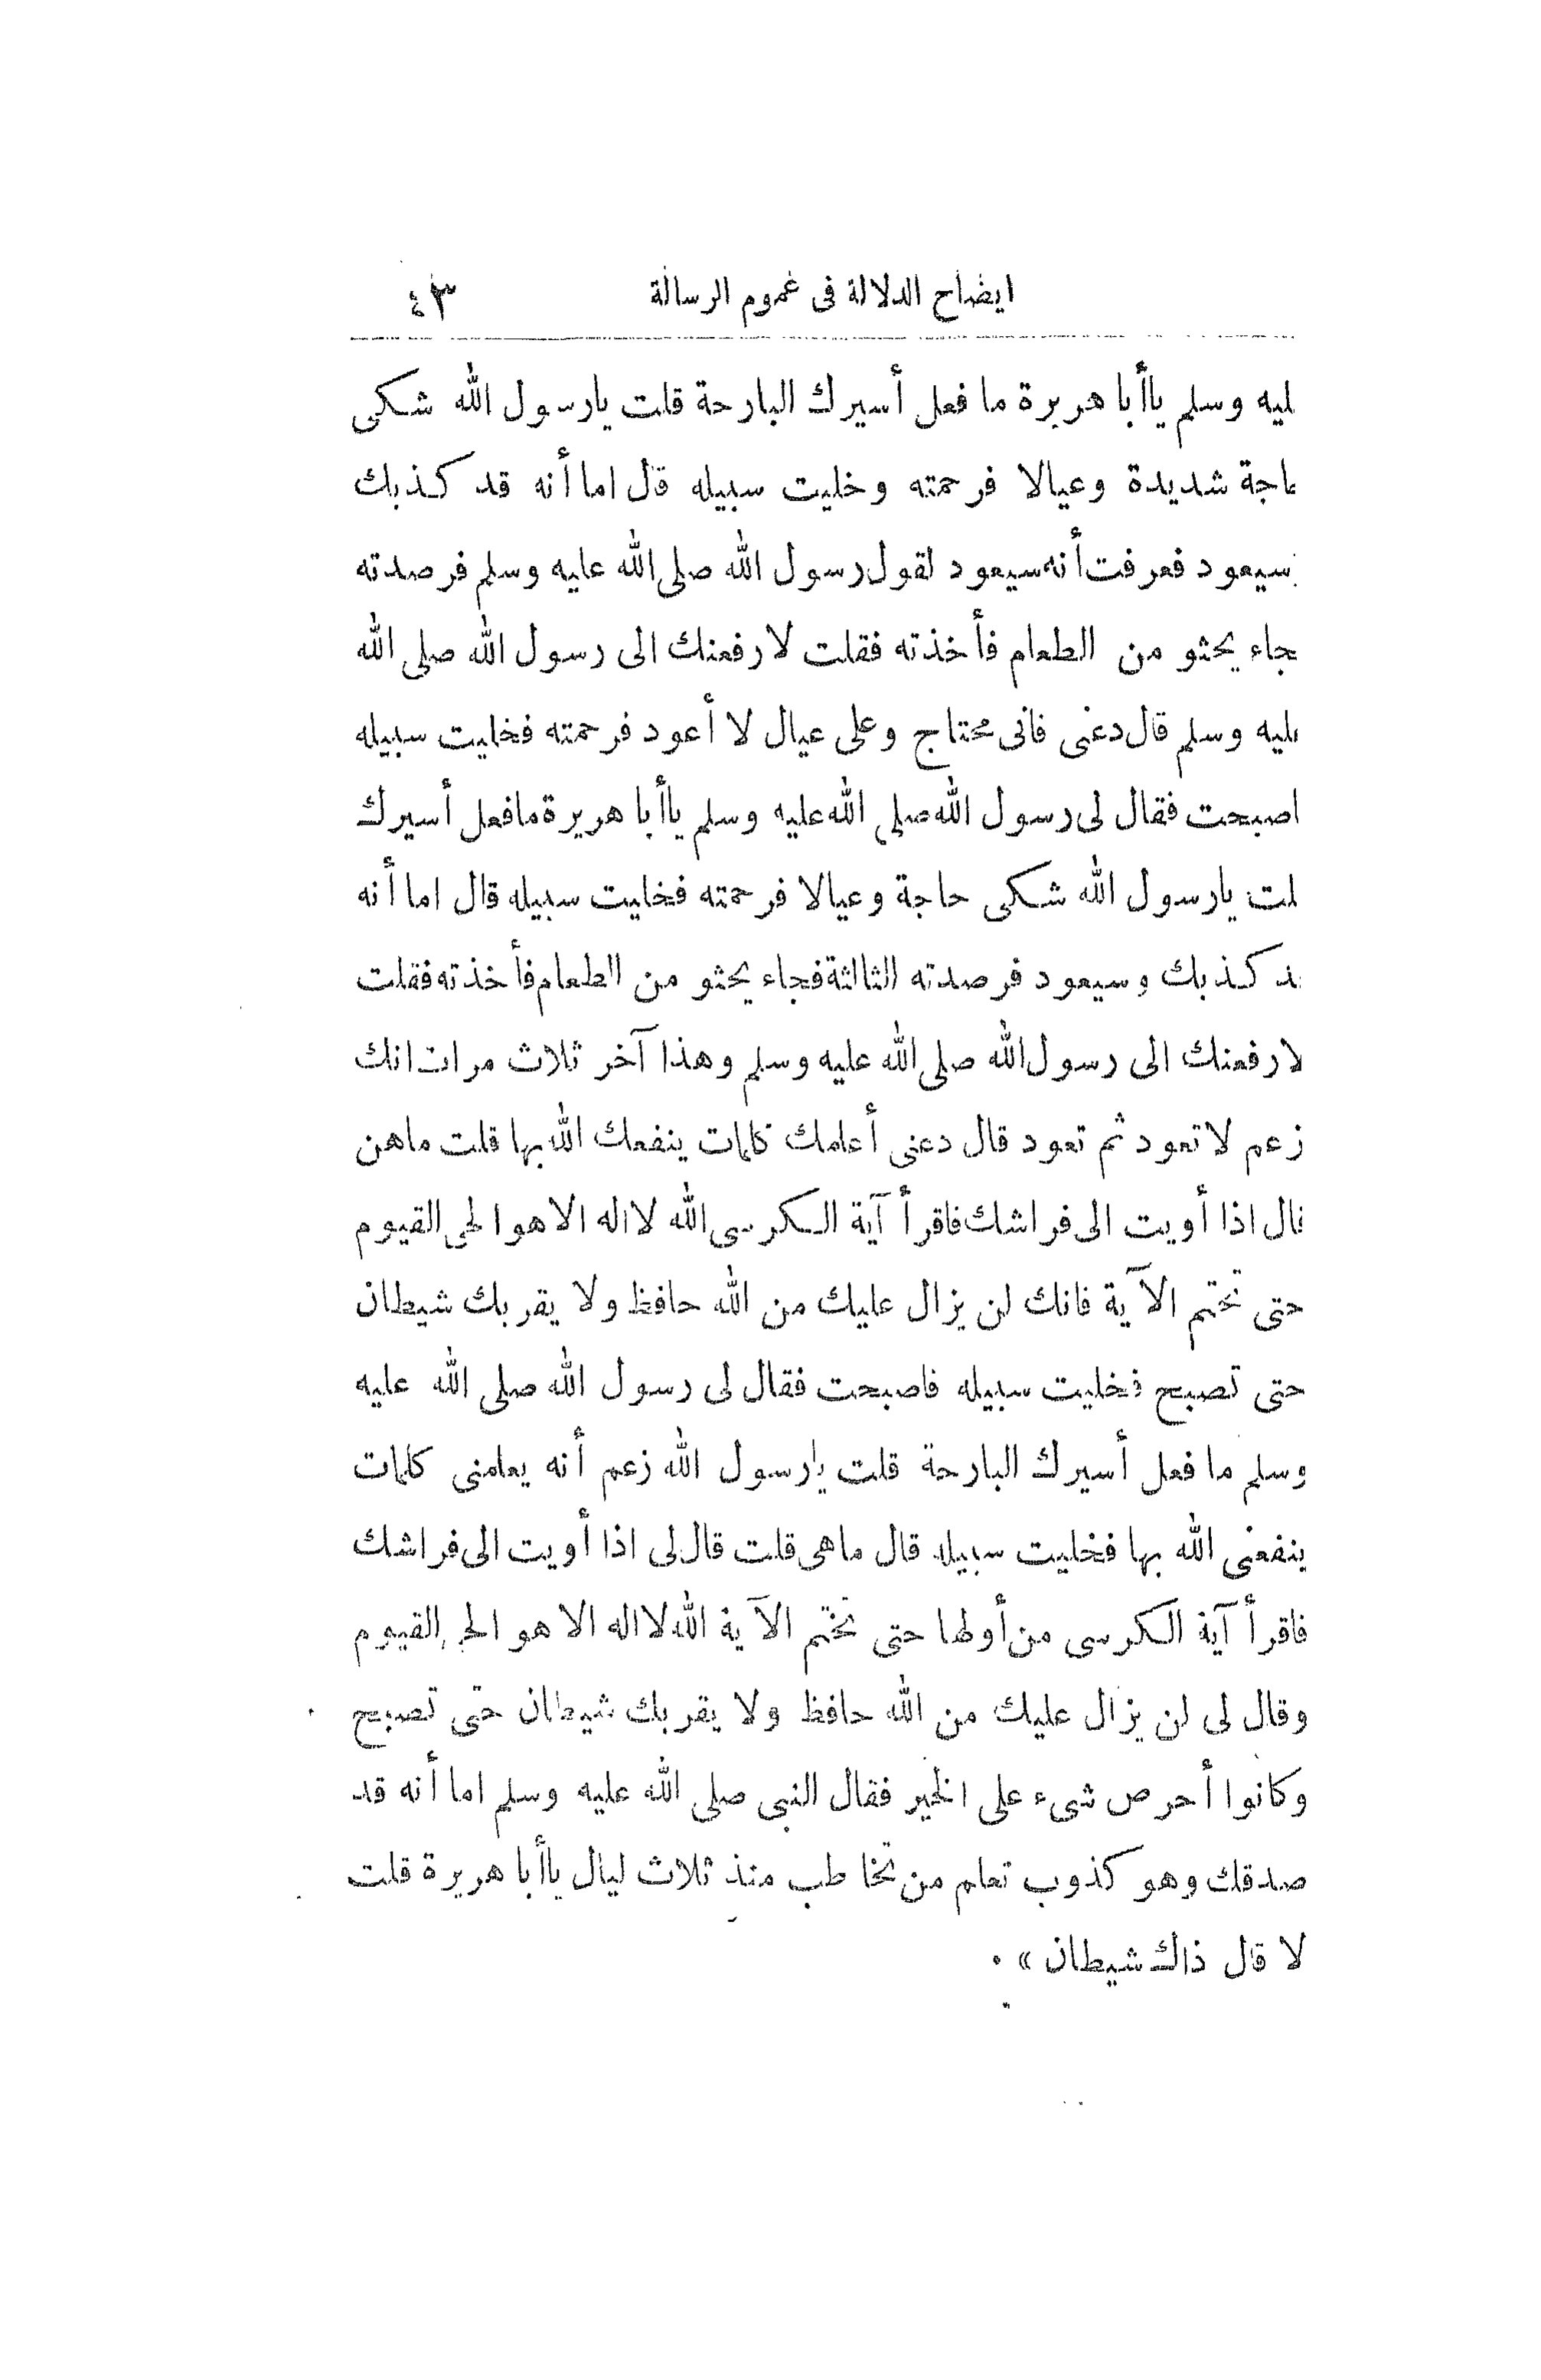 ايضاح الدلالة فى عموم الرسالة ٤٣
ليه وسلم ياأبا هريرة ما فعل أسيرك البارحة قلت يارسول الله شكى
اجة شديدة وعيالا فرحمته وخليت سبيله قال اما أنه قد كذبك
سيعود فعرفت أنه سيعود لقول رسول الله صلى الله عليه وسلم فرصدته
جاء يحثو من الطعام فأخذته فقلت لارفعنك الى رسول الله صلى الله
ليه وسلم قال دعنى فانى محتاج وعلى عيال لا أعود فرحمته فخليت سبيله
اصبحت فقال لى رسول الله صلى الله عليه وسلم ياأبا هريرة مافعل أسيرك
لت يارسول الله شكى حاجة وعيالا فرحمته فخليت سبيله قال اما أنه
د كذبك وسيعود فرصدته الثالثة فجاء يحثو من الطعام فأخذته فقلت
لارفعنك الى رسول الله صلى الله عليه وسلم وهذا آخر ثلاث مرات انك
زعم لاتعود ثم تعود قال دعنى أعلمك كلمات ينفعك الله بها قلت ماهن
قال اذا أويت الى فراشك فاقرأ آية الكرسى الله لااله الا هو الحى القيوم
حتى تختم الآية فانك لن يزال عليك من الله حافظ ولا يقربك شيطان
حتى تصبح فخليت سبيله فاصبحت فقال لى رسول الله صلى الله عليه
وسلم ما فعل أسيرك البارحة قلت يارسول الله زعم أنه يعلمنى كلمات
ينفعنى الله بها فخليت سبيله قال ماهى قلت قال لى اذا أويت الى فراشك
فاقرأ آية الكرسى من أولها حتى تختم الآية الله لااله الا هو الحى القيوم
وقال لى لن يزال عليك من الله حافظ ولا يقربك شيطان حتى تصبح
وكانوا أحرص شىء على الخير فقال النبى صلى الله عليه وسلم اما أنه قد
صدقك وهو كذوب تعلم من تخاطب منذ ثلاث ليال ياأبا هريرة قلت
لا قال ذاك شيطان » .